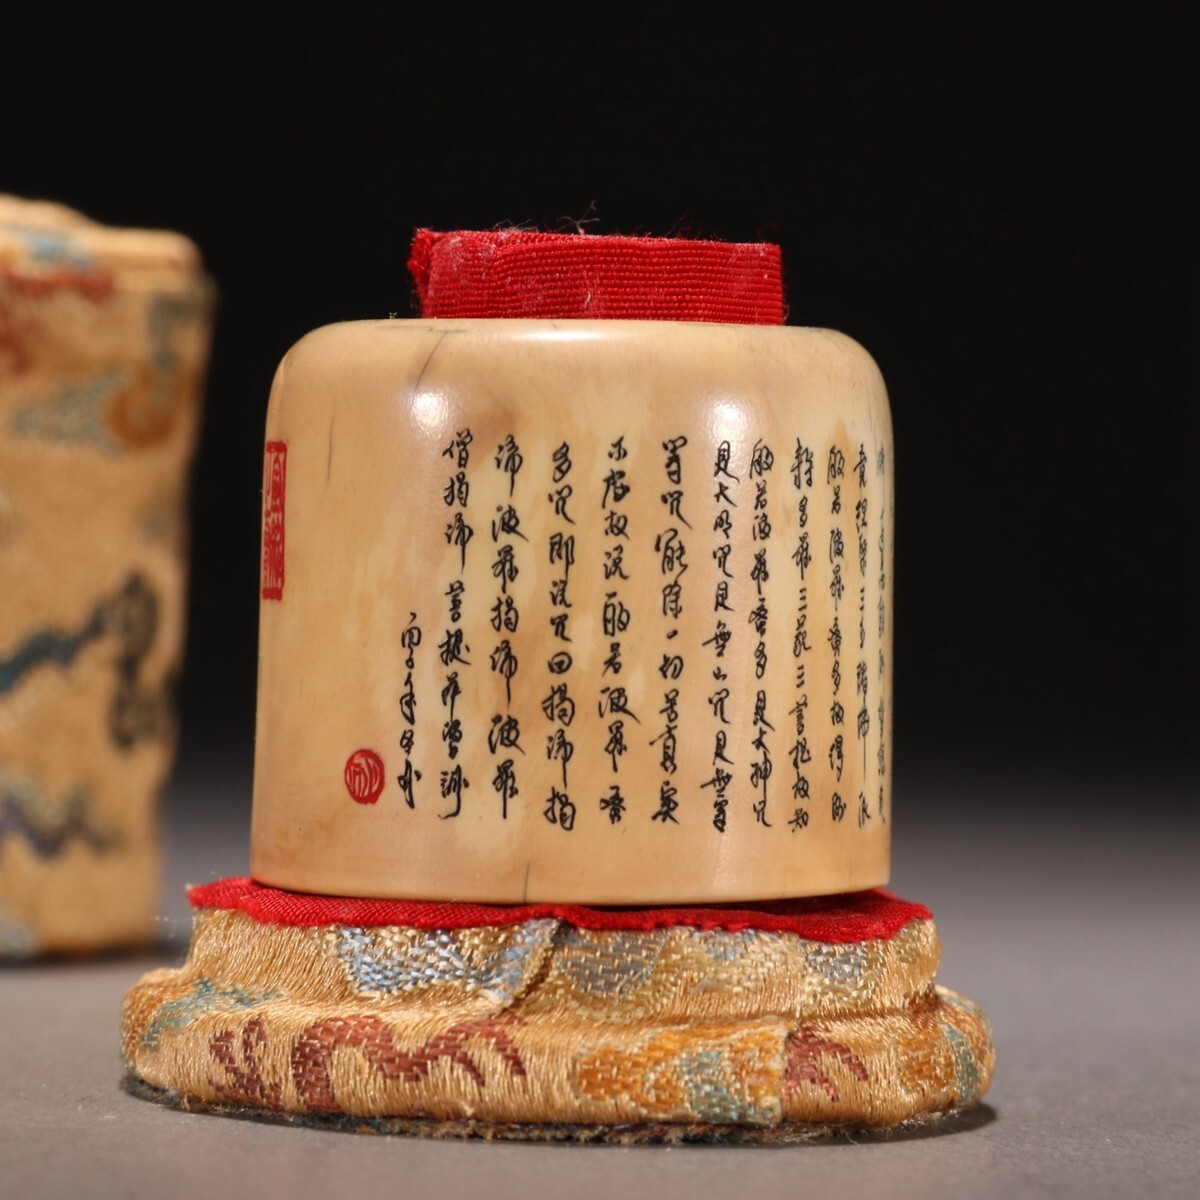 究竟涅槃三世諸佛依
般若波羅蜜多故得阿
耨多羅三藐三菩提故知
般若波羅蜜多是大神咒
是大明咒是無上咒是無等
等咒能除一切苦真實
不虛故説般若波羅蜜
多咒即説咒曰揭諦揭
諦波羅揭諦波羅
僧揭諦菩提薩婆訶
丙子年